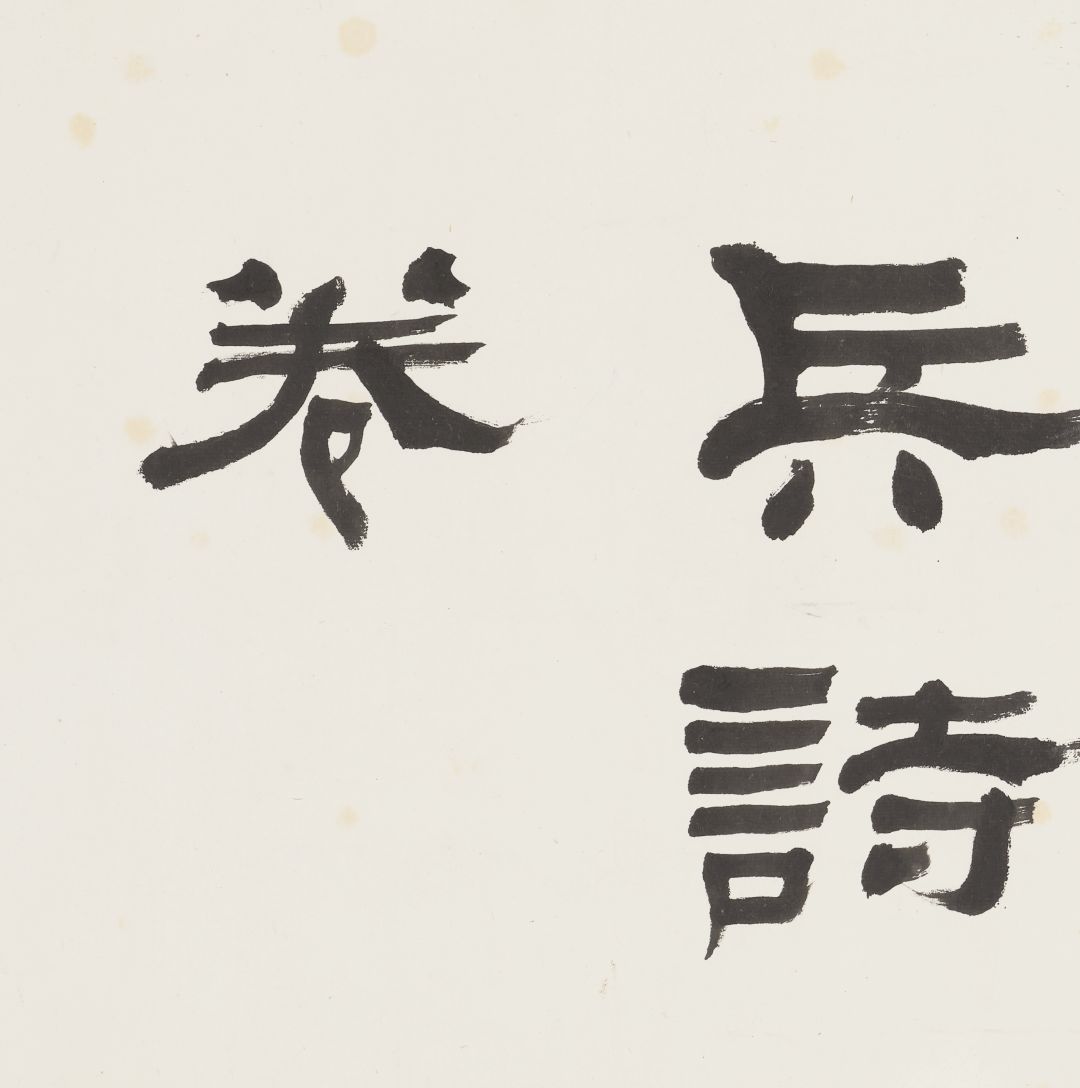 兵詩
卷